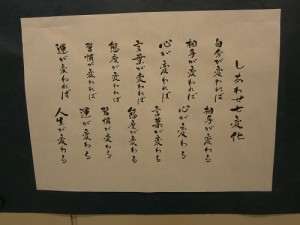 しあわせ七変化
自分が変われば
相手が変わる
相手が変われば
心が変わる
心が変われば
言葉が変わる
言葉が変われば
態度が変わる
態度が変われば
習慣が変わる
習慣が変われば
運が変わる
運が変われば
人生が変わる